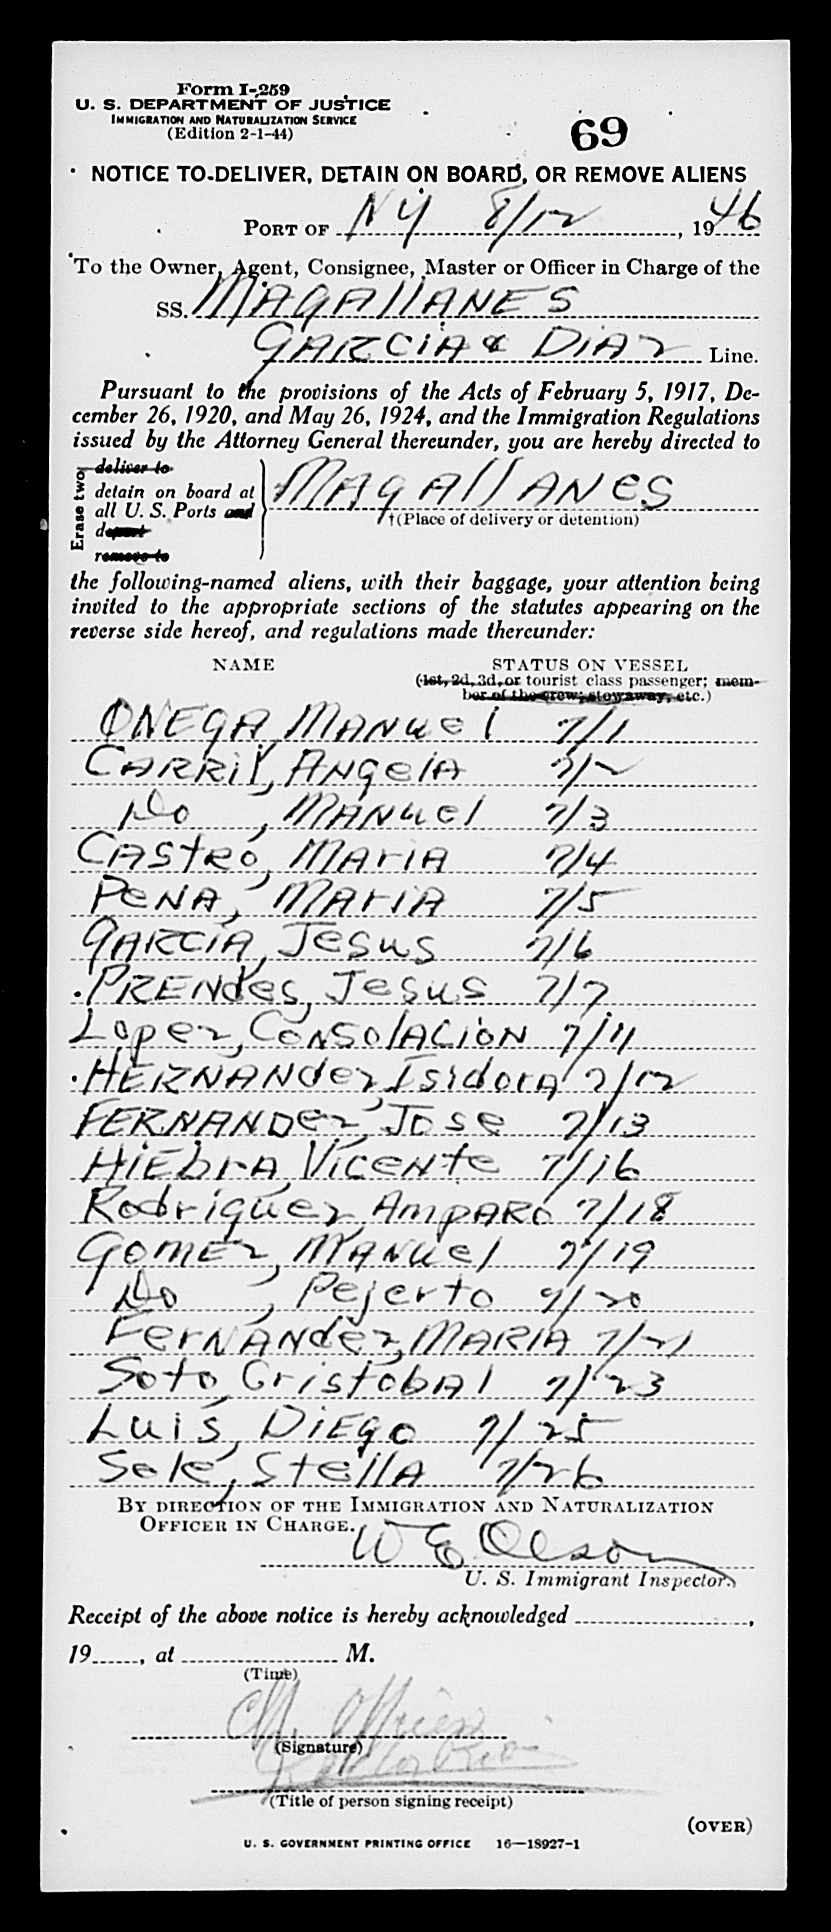 Form I-259
U. S. DEPARTMENT OF JUSTICE
IMMIGRATION AND NATURALIZATION SERVICE
(Edition 2-1-44)
69
NOTICE TO DELIVER, DETAIN ON BOARD, OR REMOVE ALIENS
PORT OF NY 8/12, 1946
To the Owner, Agent, Consignee, Master or Officer in Charge of the
SS. MAGAllANES
GARCiA & DIAZ Line.
Pursuant to the provisions of the Acts of February 5, 1917, De-
cember 26, 1920, and May 26, 1924, and the Immigration Regulations
issued by the Attorney General thereunder, you are hereby directed to
Erase two
deliver to
detain on board at
all U. S. Ports and
depart
remove to
MAgAllANes
†(Place of delivery or detention)
the following-named aliens, with their baggage, your attention being
invited to the appropriate sections of the statutes appearing on the
reverse side hereof, and regulations made thereunder:
NAME STATUS ON VESSEL
(1st, 2d, 3d, or tourist class passenger; mem-
ber of the crew; stowaway, etc.)
ONEGA, MANuel 7/1
CARRil, ANgelA 7/2
Do, MANuel 7/3
CAStRo, MAriA 7/4
PeNA, MAriA 7/5
GARCIA, Jesus 7/6
PRENdes, Jesus 7/7
Lopez, CoNSolACiON 7/11
HERNANdez, IsidorA 7/12
FERNANDez, Jose 7/13
HiEbrA, ViceNte 7/16
Rodriguez, AmpARo 7/18
GomEz, MANuel 7/19
Do, Pejerto 7/20
FerNANdez, MARIA 7/21
Soto, CristobAl 7/23
Luis, DiEgo 7/25
Sole, StellA 7/26
BY DIRECTION OF THE IMMIGRATION AND NATURALIZATION
OFFICER IN CHARGE.
W E Olson
U. S. Immigrant Inspector.
Receipt of the above notice is hereby acknowledged
19, at M.
(Time)
(Signature)
(Title of person signing receipt)
(OVER)
U. S. GOVERNMENT PRINTING OFFICE 16—18927-1